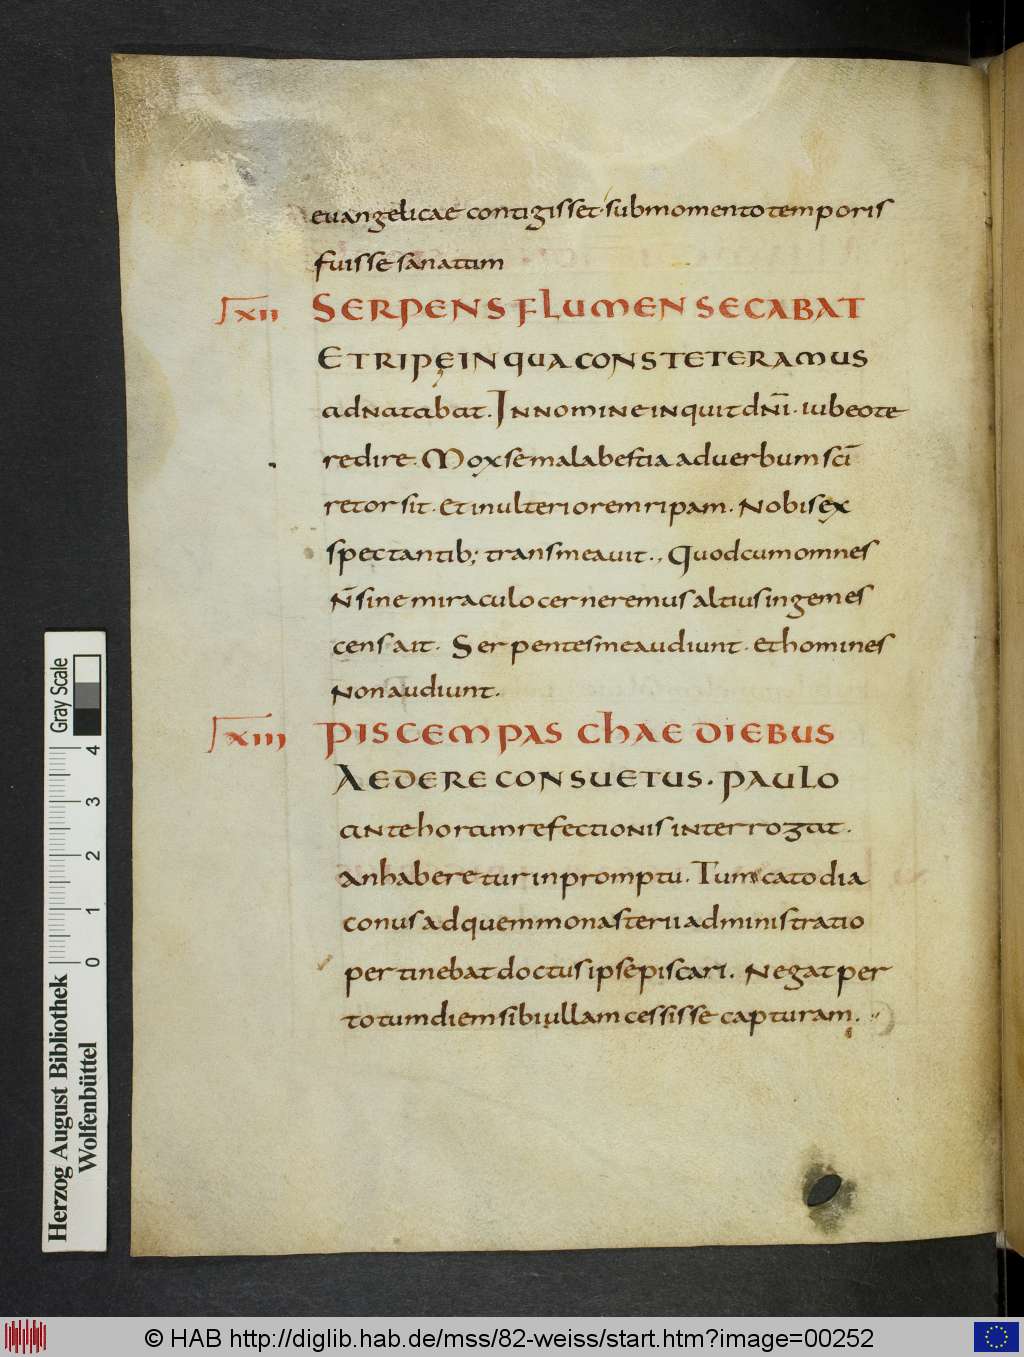 euangelicae contigisset · sub momento temporis
fuisse sanatum
xii SERPENS FLUMEN SECABAT
ET RIPĘ IN QUA CONSTETERAMUS
adnatabat. In nomine inquit dn̄i · iubeo te
redire · Mox se mala bestia ad uerbum sc̄i
retorsit · et in ulteriorem ripam. Nobis ex
spectantib; transmeauit ., Quod cum omnes
n̄ sine miraculo cerneremus altius ingemes
cens ait · Serpentes me audiunt · et homines
non audiunt.
xiii PISCEM PASCHAE DIEBUS
AEDERE CONSUETUS. PAULO
ante horam refectionis interrogat.
an haberetur in promptu. Tum cato dia
conus ad quem monasterii administratio
pertinebat doctus ipse piscari. Negat per
totum diem sibi ullam cessisse capturam.
Herzog August Bibliothek
Wolfenbüttel
0 1 2 3 4
Gray Scale
© HAB http://diglib.hab.de/mss/82-weiss/start.htm?image=00252